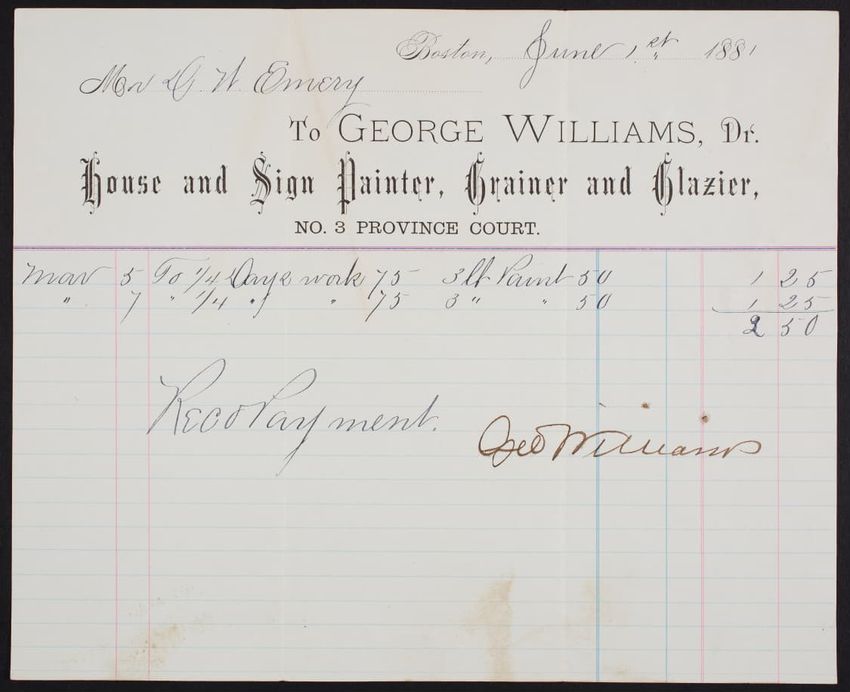 Boston, June 1st 1881
Mr D. W. Emery
To George Williams, Dr.
House and Sign Painter, Grainer and Glazier,
No. 3 Province Court.
May 5 To 1/4 Days work 75 3 lb Paint 50 1 25
" 7 " 1/4 " " 75 3 " " 50 1 25
2 50
Recd Payment.
Geo Williams